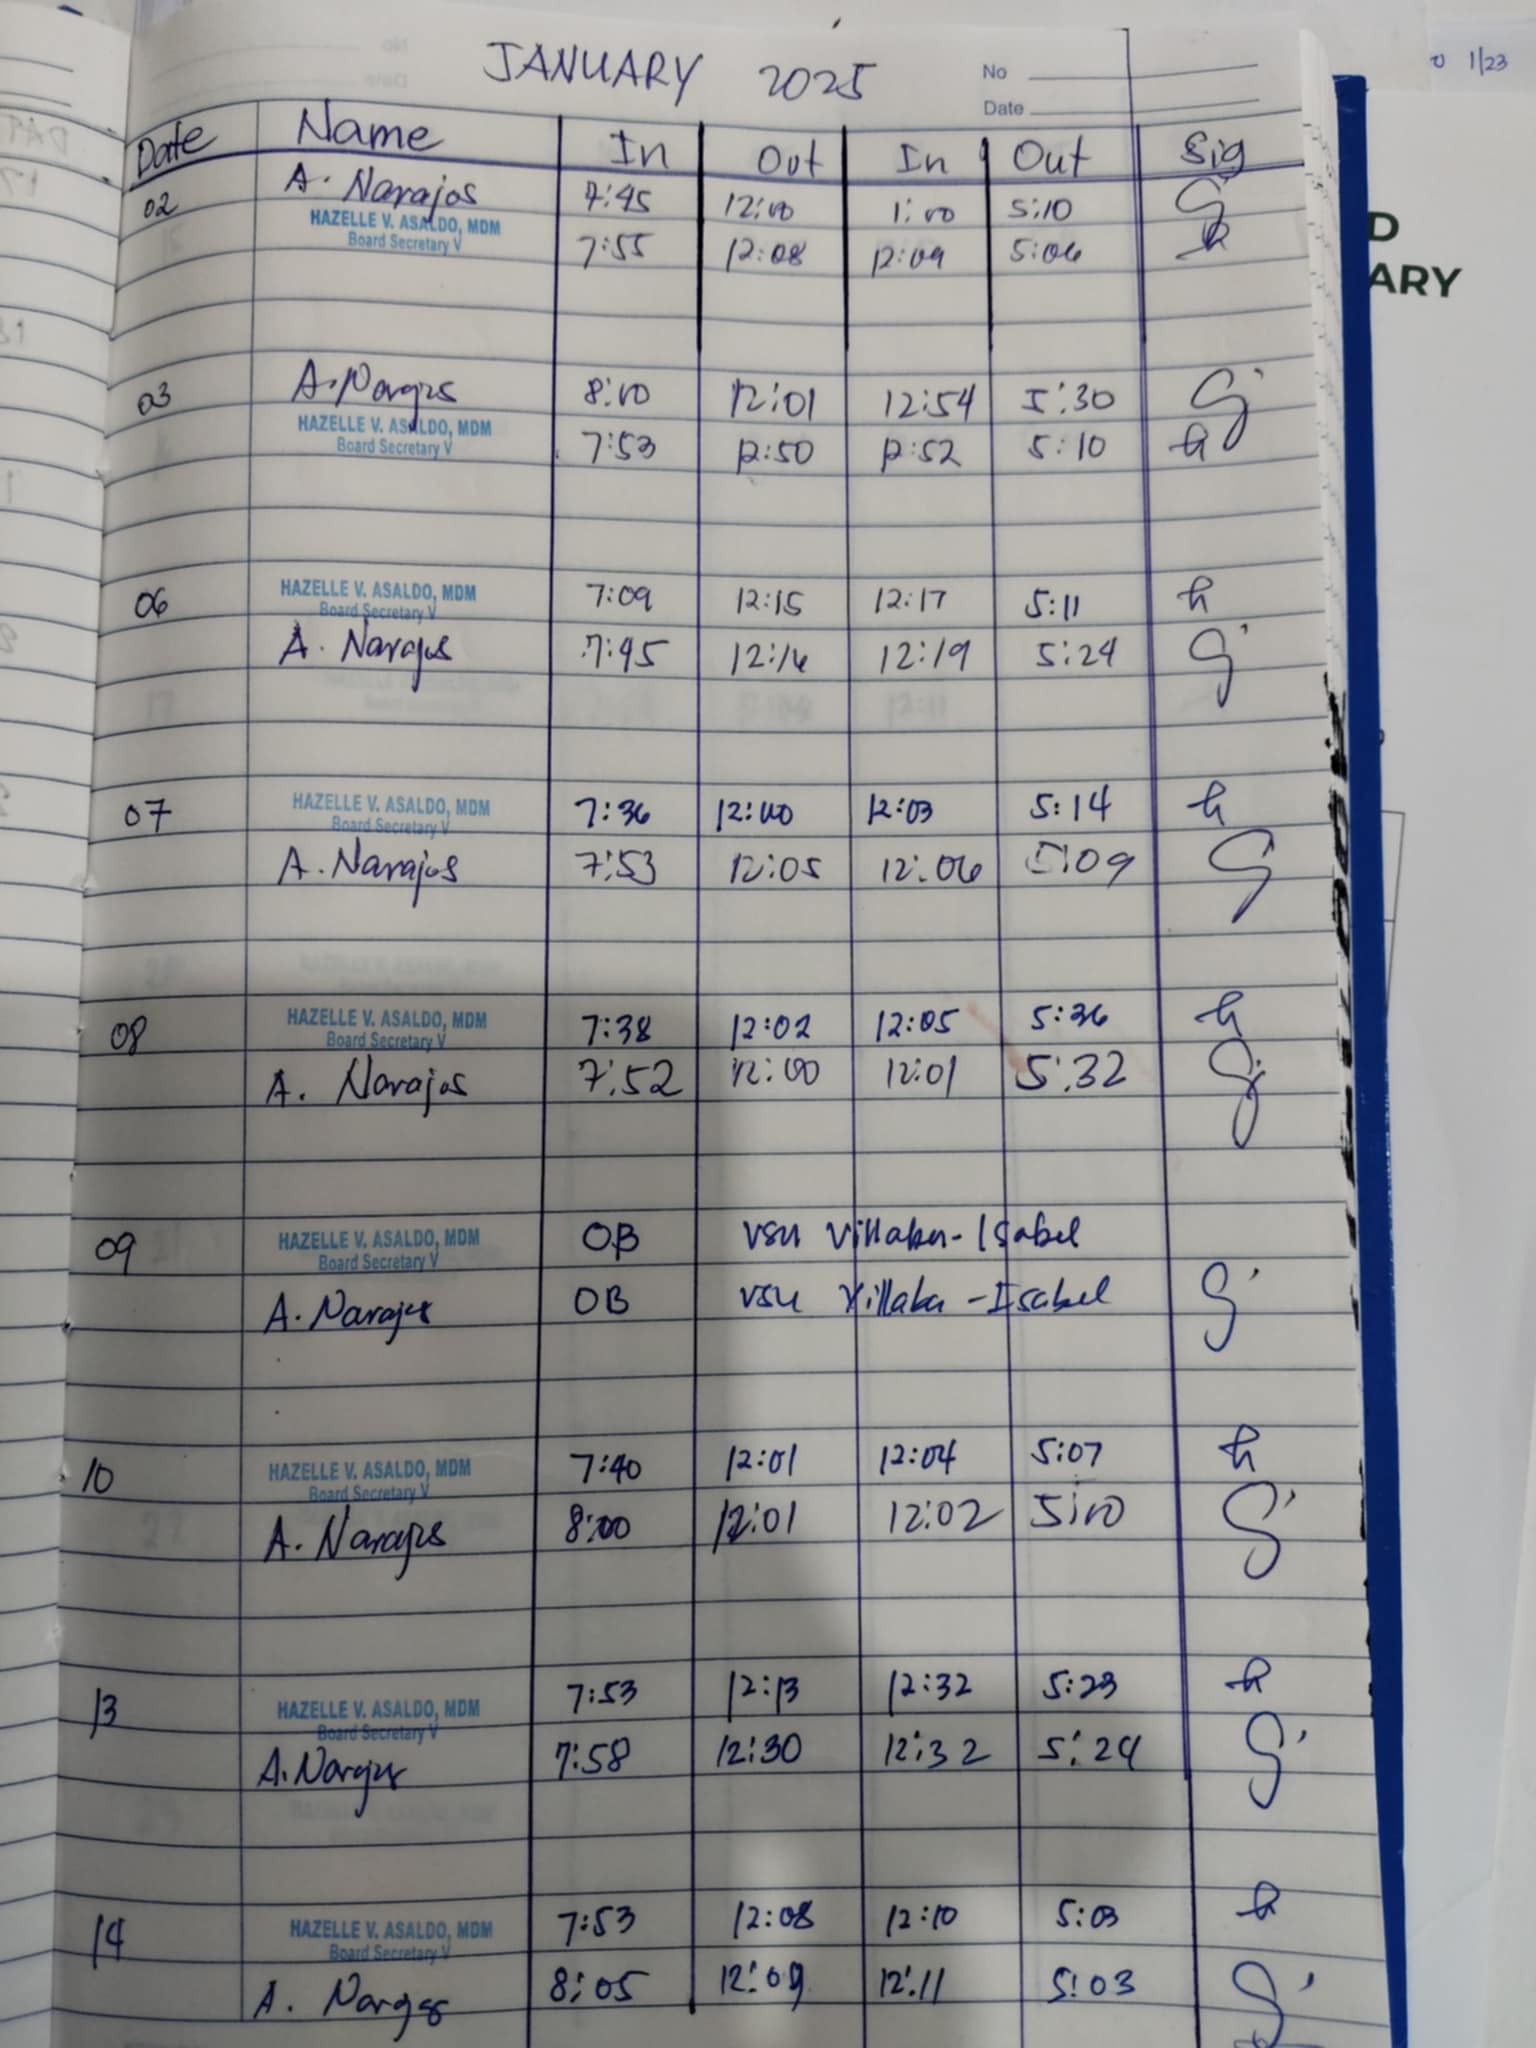 JANUARY 2025
No
Date
1/23
Date Name In Out In Out Sig
02 A. Narajos 7:45 12:00 1:00 5:10
HAZELLE V. ASALDO, MDM
Board Secretary V
7:55 12:08 12:09 5:06
D
ARY
03 A. Narajos 8:10 12:01 12:54 5:30
HAZELLE V. ASALDO, MDM
Board Secretary V
7:53 12:50 12:52 5:10
06 HAZELLE V. ASALDO, MDM 7:09 12:15 12:17 5:11
Board Secretary V
A. Narajos 7:45 12:16 12:19 5:24
07 HAZELLE V. ASALDO, MDM 7:36 12:00 12:03 5:14
Board Secretary V
A. Narajos 7:53 12:05 12:06 5:09
08 HAZELLE V. ASALDO, MDM 7:38 12:02 12:05 5:36
Board Secretary V
A. Narajos 7:52 12:00 12:01 5:32
09 HAZELLE V. ASALDO, MDM OB VSU Villaba - Isabel
Board Secretary V
A. Narajos OB VSU Villaba - Isabel
10 HAZELLE V. ASALDO, MDM 7:40 12:01 12:04 5:07
Board Secretary V
A. Narajos 8:00 12:01 12:02 5:10
13 HAZELLE V. ASALDO, MDM 7:53 12:13 12:32 5:23
Board Secretary V
A. Narajos 7:58 12:30 12:32 5:24
14 HAZELLE V. ASALDO, MDM 7:53 12:08 12:10 5:03
Board Secretary V
A. Narajos 8:05 12:09 12:11 5:03